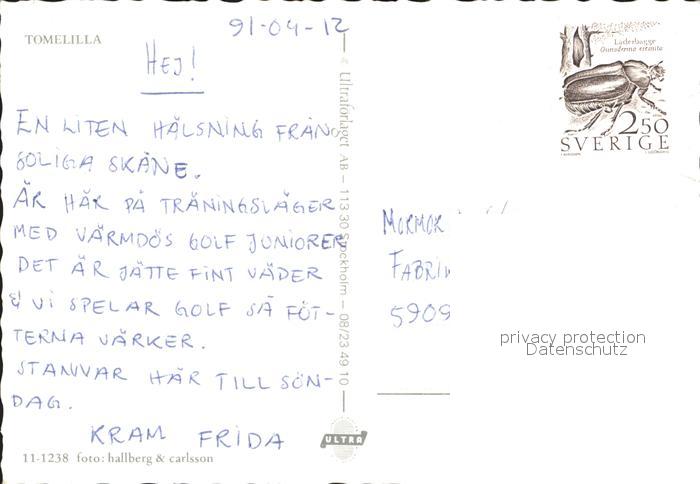 91-04-12
TOMELILLA
HEJ!
EN LITEN HÄLSNING FRÅN
SOLIGA SKÅNE.
ÄR HÄR PÅ TRÄNINGSLÄGER
MED VÄRMDÖS GOLF JUNIORER
DET ÄR JÄTTE FINT VÄDER
& VI SPELAR GOLF SÅ FÖT-
TERNA VÄRKER.
STANNAR HÄR TILL SÖN-
DAG.
KRAM FRIDA
11-1238 foto: hallberg & carlsson
© Ultraförlaget AB – 113 30 Stockholm – 08/23 49 10
ULTRA
Läderbagge
Osmoderma eremita
2.50
SVERIGE
MORMOR
5909
privacy protection
Datenschutz